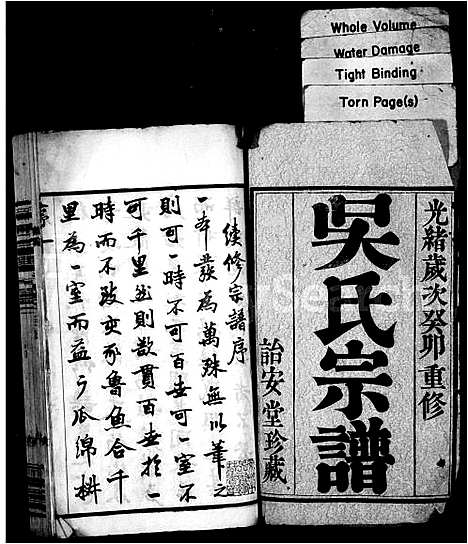 Whole Volume
Water Damage
Tight Binding
Torn Page(s)
光緒歲次癸卯重修
吳氏宗譜
詒安堂珍藏
續修宗譜序
一本發為萬殊無以筆之
則可一時不可百世可一室不
可千里然則欲貫百世於一
時而不致亥豕魯魚合千
里為一室而益以瓜綿椒